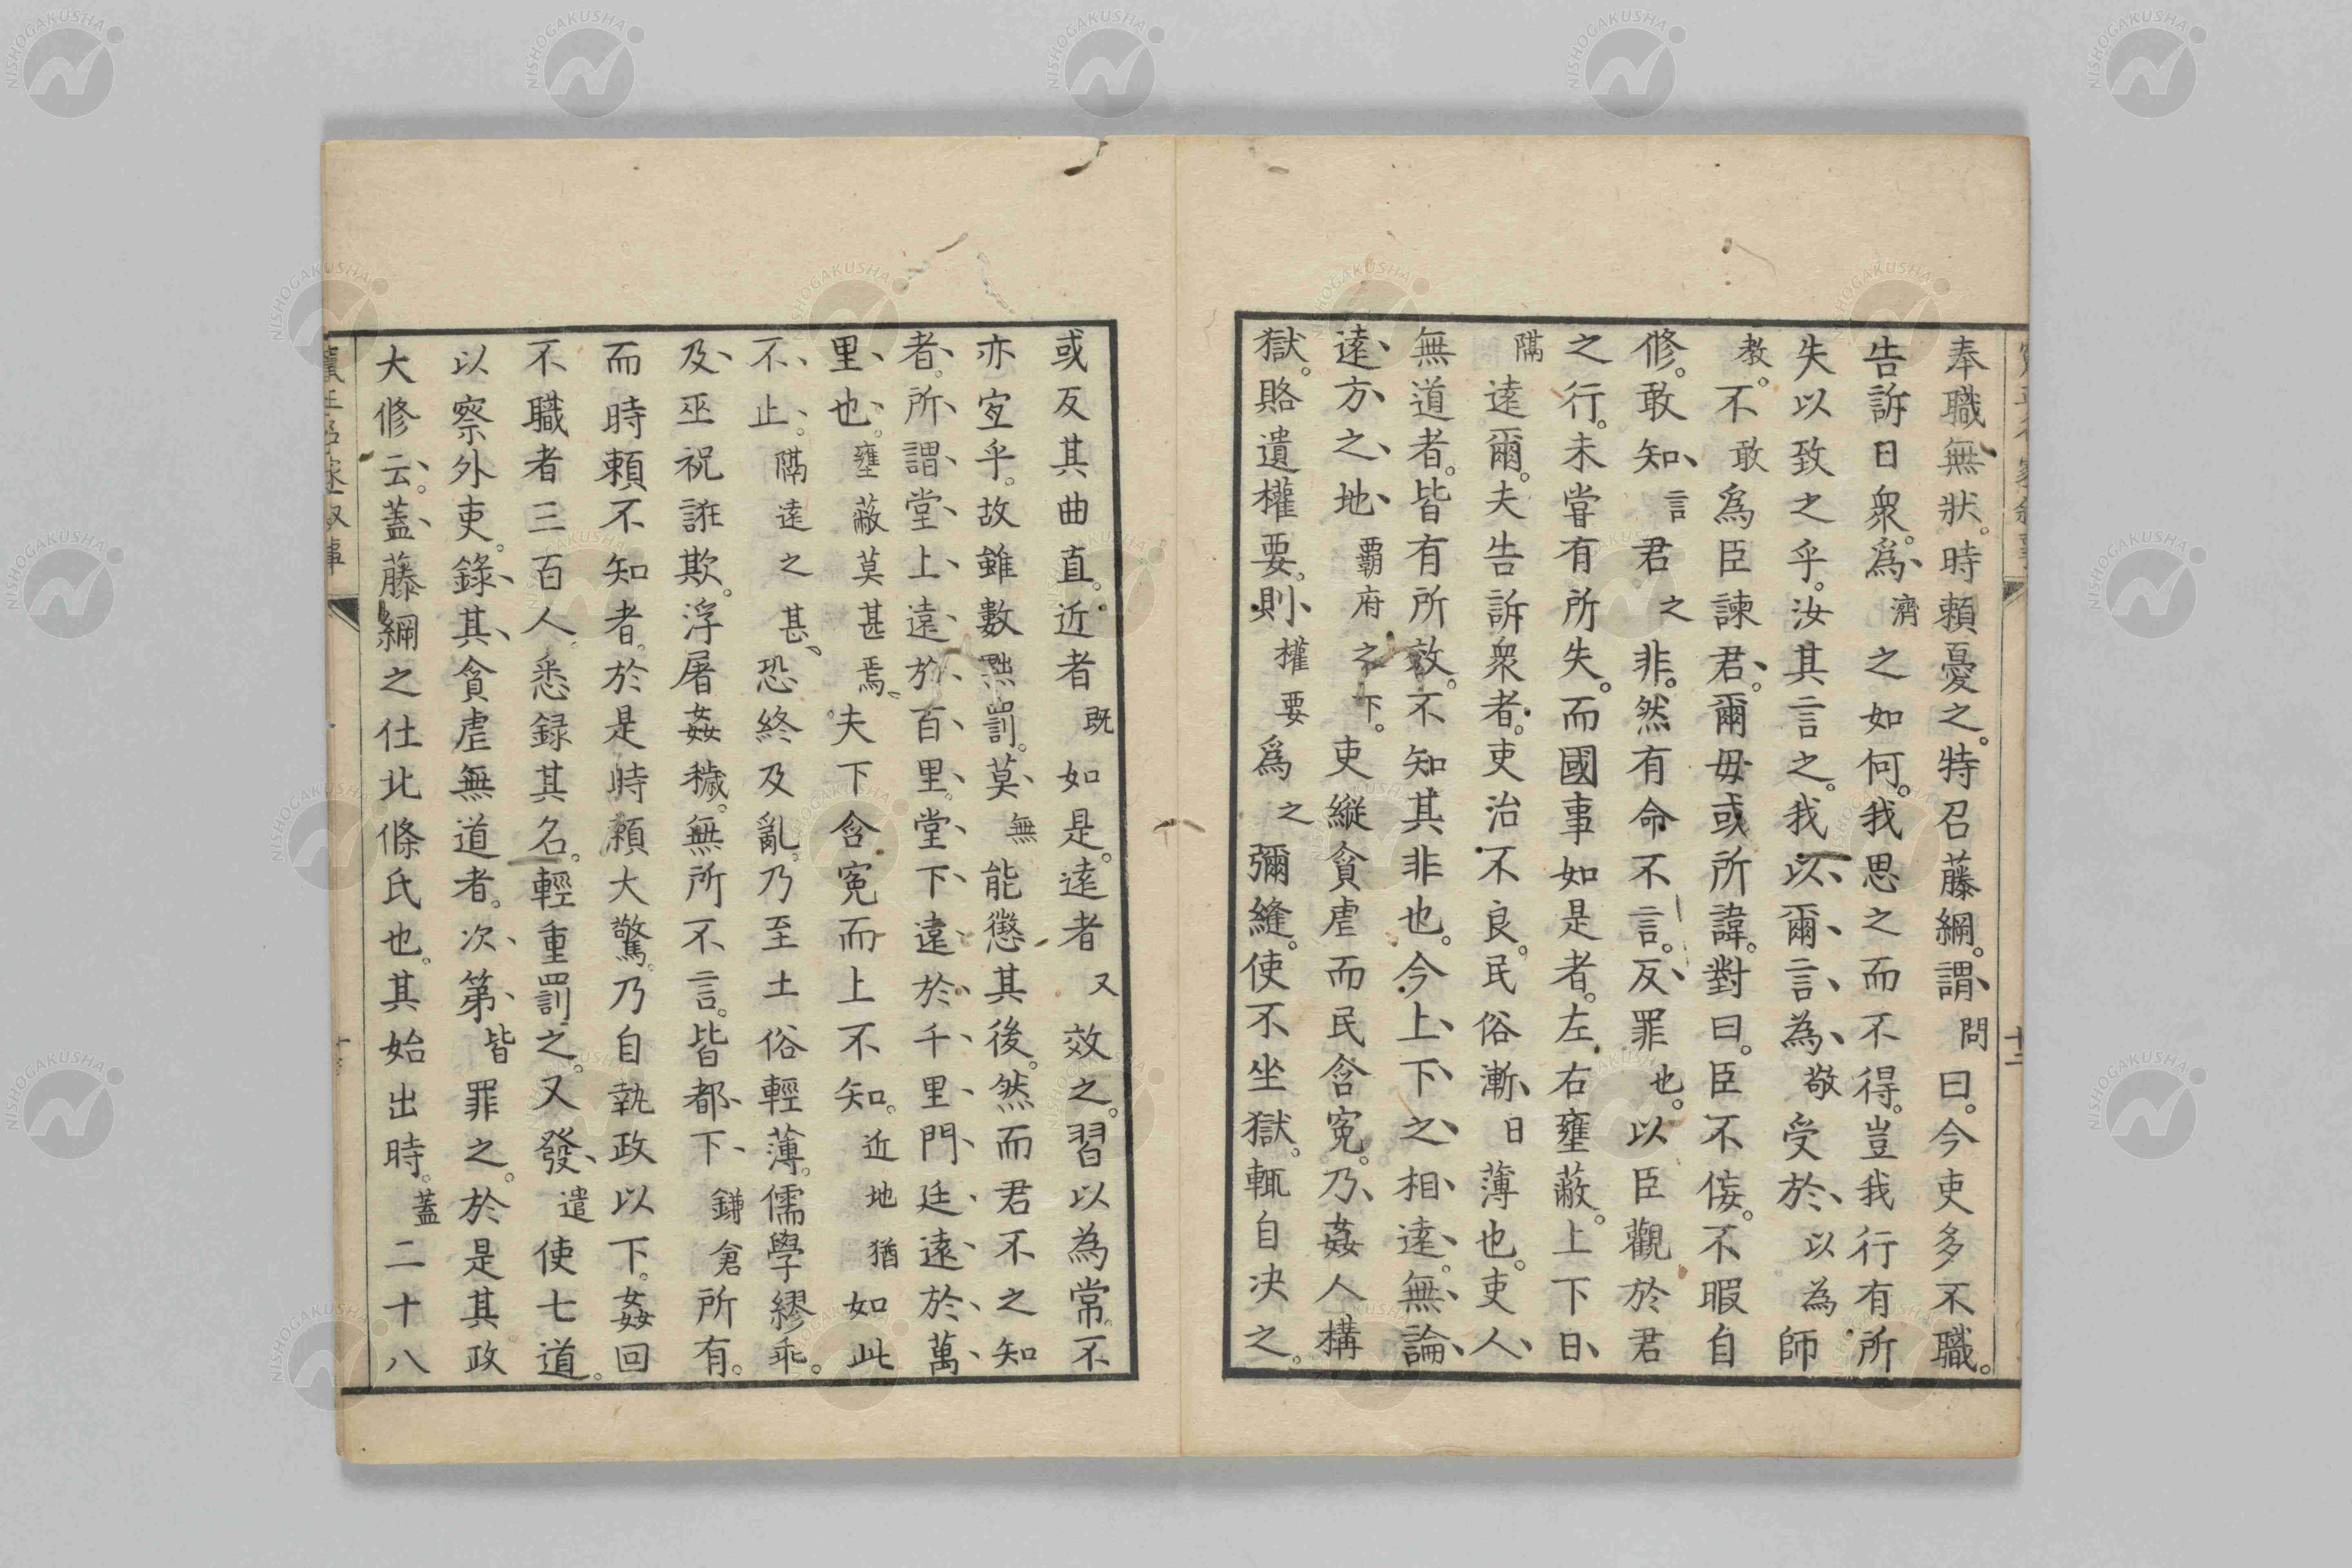 十二
奉職無狀。時頼憂之。特召藤綱。謂、問曰。今吏多不職。
告訴日衆。爲、濟之如何。我思之而不得。豈我行有所
失以致之乎。汝其言之。我以、爾、言、為、敬受於、以為師
教。不敢爲臣諫君、。爾毋或所諱。對曰。臣不侫。不暇自
修。敢知、言君之非。然有命不言。反、罪也。以臣觀於君
之行。未甞有所失。而國事如是者。左右壅蔽。上下日、
隔遠爾。夫告訴衆者。吏治不良。民俗漸、日薄也。吏人、
無道者。皆有所效。不知其非也。今上、下、之、相、遠、。無、論、
遠、方、之、地、覇府之下。吏縱貪虐而民含寃。乃、姦人構
獄。賂遺權要。則、權要爲之彌縫。使不坐獄。輒自决之。
或反其曲直。近者既如是。遠者又效之。習以為常。不
亦宐乎。故雖數黜罰。莫、無能懲其後。然而君不之知
者、。所、謂、堂、上、遠、於、百、里、。堂、下、遠、於、千、里、門、廷、遠、於、萬、
里、也、。壅蔽莫甚焉。夫下含寃而上不知。近地猶如此
不、止、。隔遠之甚、。恐終及亂。乃至土俗輕薄。儒學繆乖。
及、巫祝誑欺。浮屠姦穢。無所不言。皆都、下、鎌倉所有。
而時頼不知者。於是時頼大驚。乃自執政以下。姦回
不職者三百人。悉録其名。輕重罰之。又發、遣使七道。
以察外吏。錄、其、貪虐無道者。次、第、皆罪之。於是其政
大修云、。蓋、藤綱之仕北條氏也。其始出時。蓋二十八
NISHOGAKUSHA